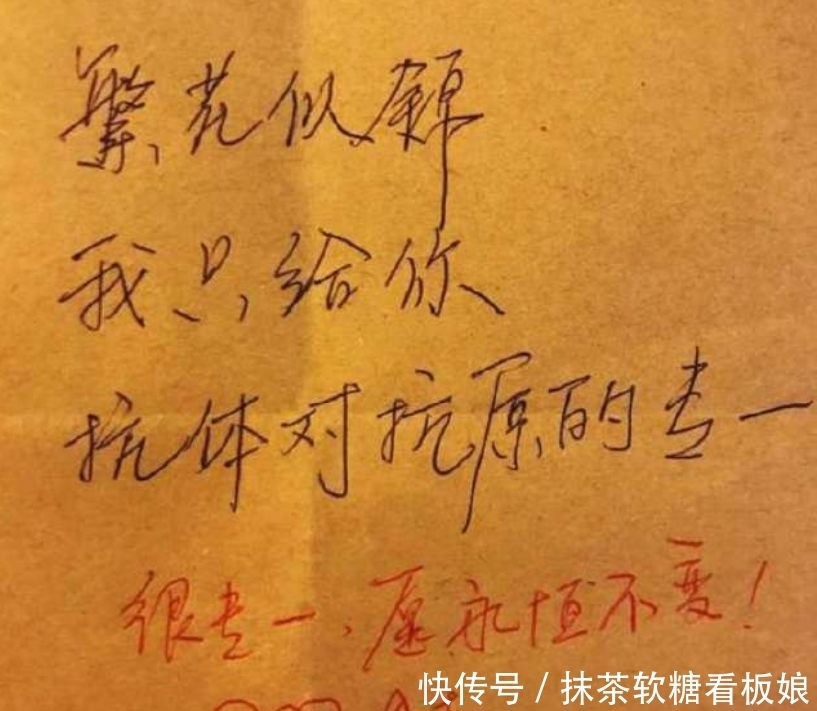 繁花似锦
我只给你
抗体对抗原的专一
很专一、愿永恒不变！
快传号 / 抹茶软糖看板娘